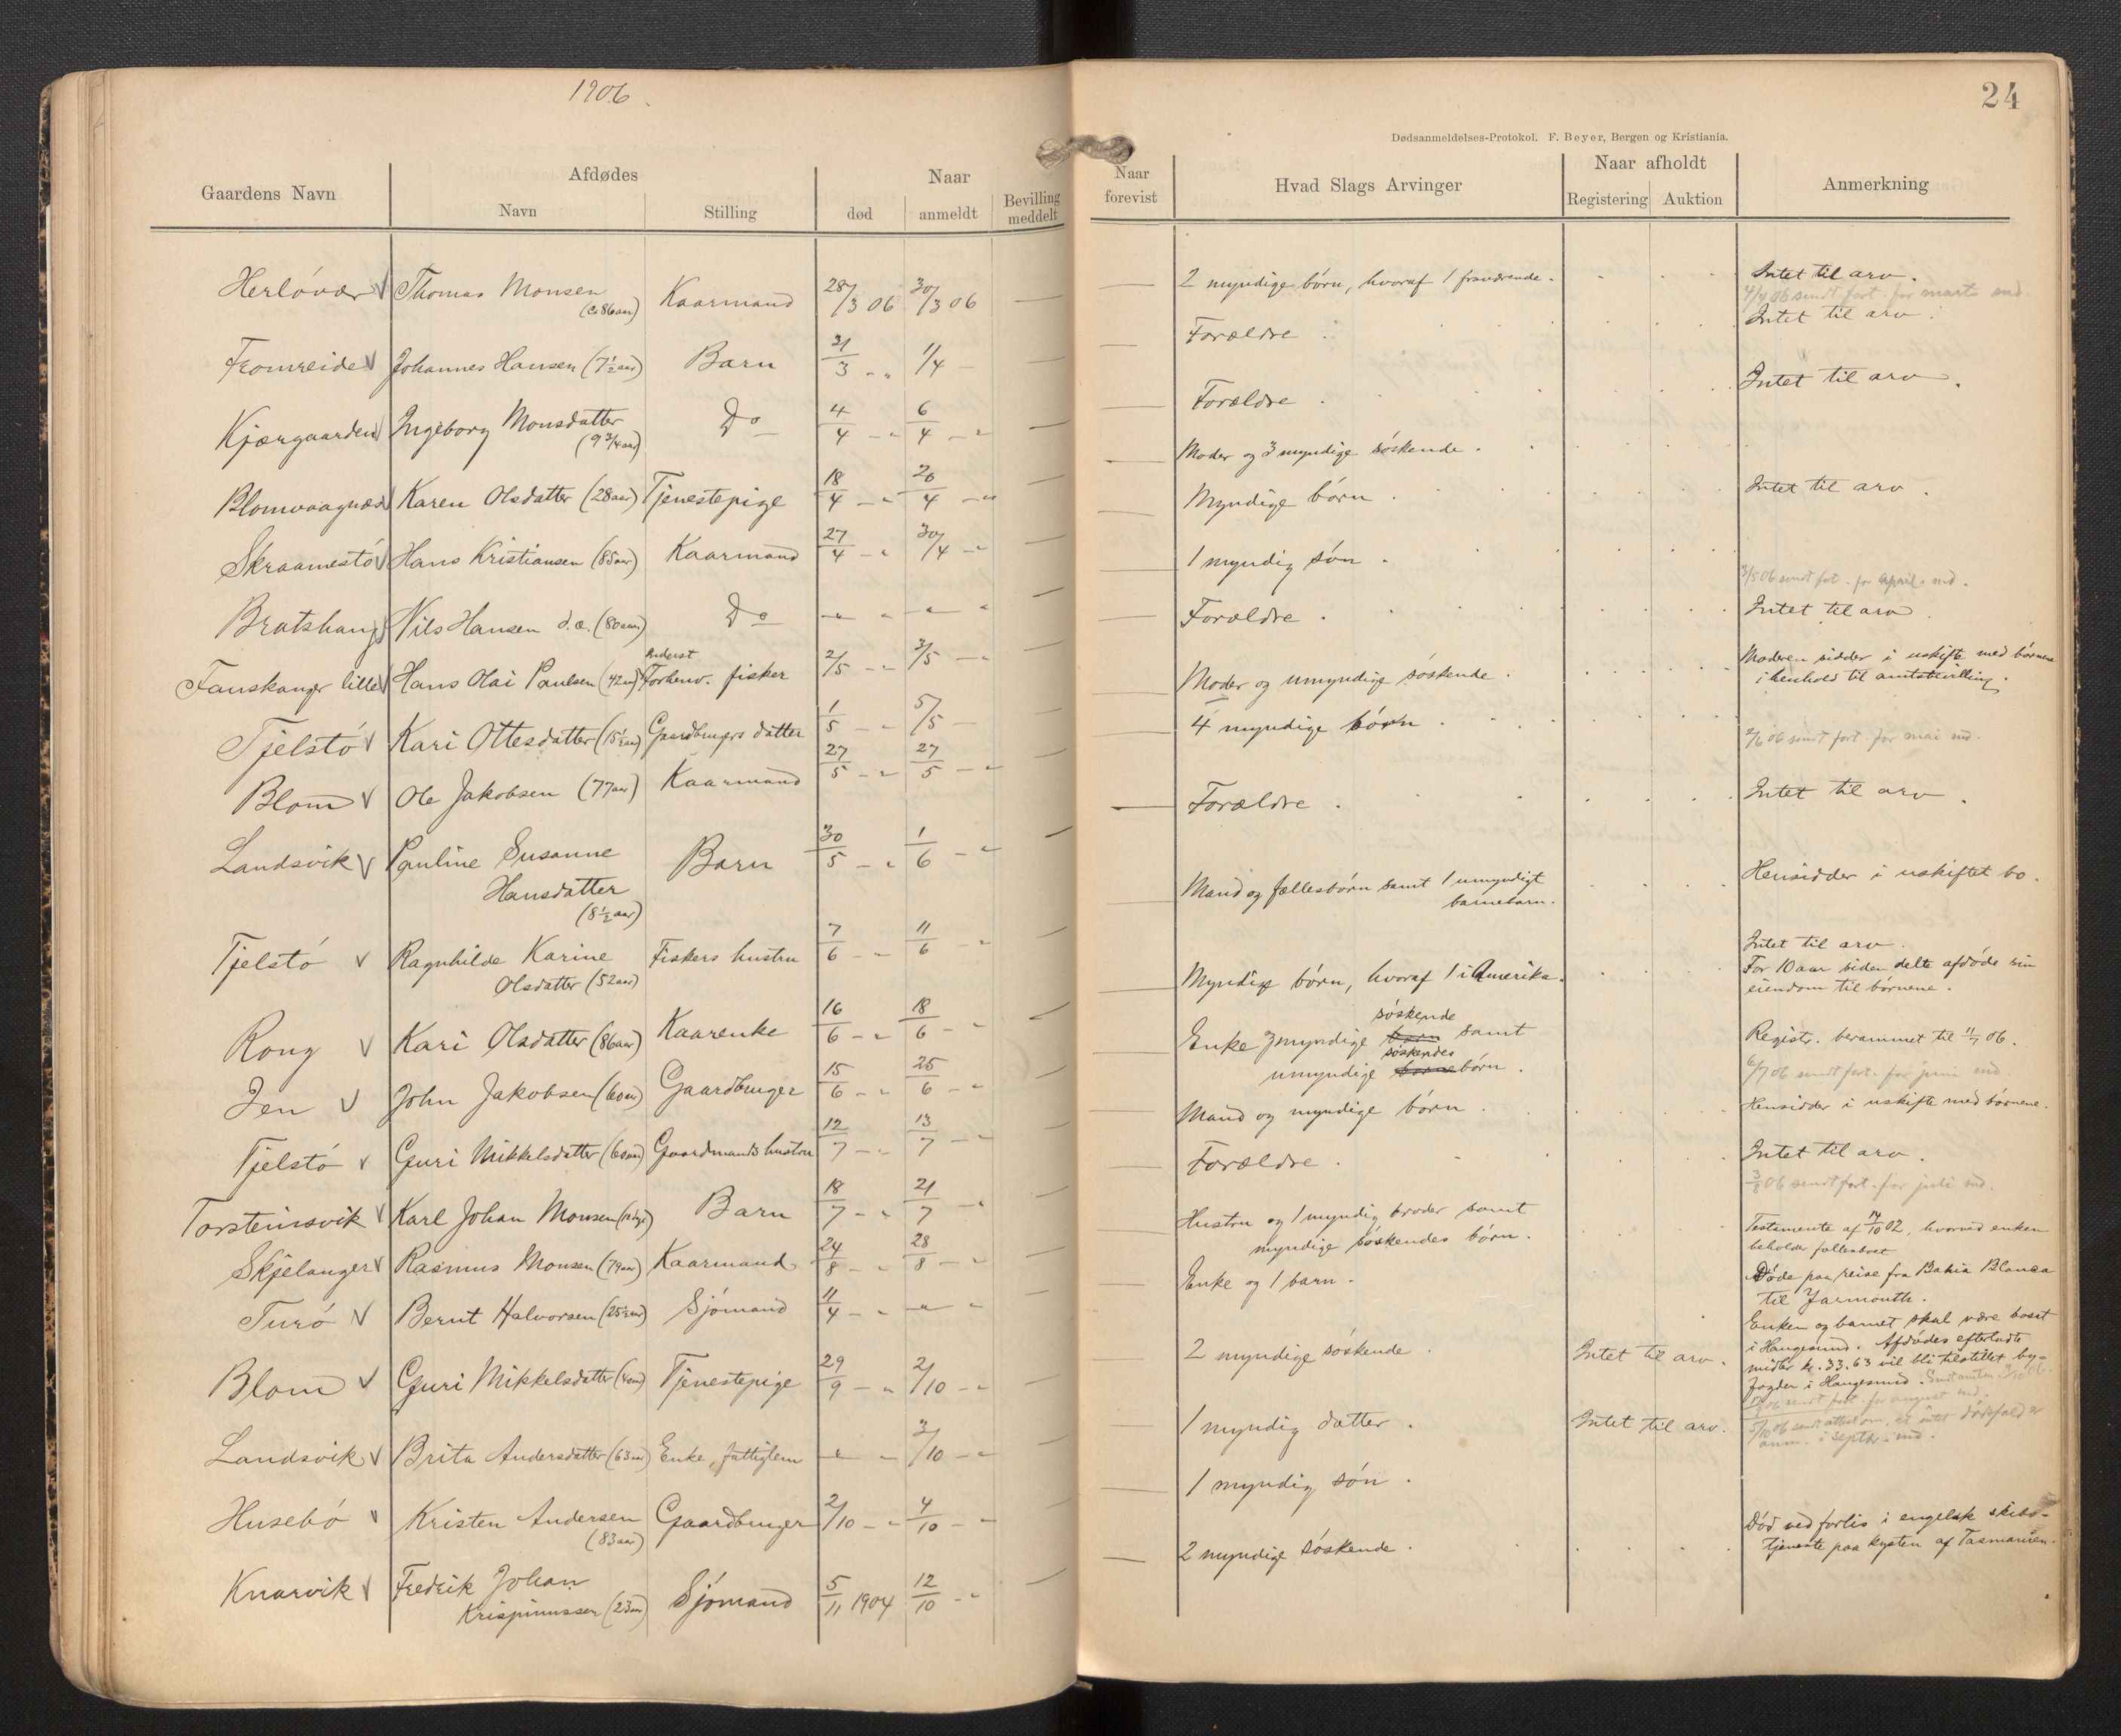 1906
24
Dødsanmeldelses-Protokol. F. Beyer, Bergen og Kristiania.
Gaardens Navn
Afdødes
Navn
Stilling
Naar
død
anmeldt
Bevilling meddelt
Naar forevist
Hvad Slags Arvinger
Naar afholdt
Registering
Auktion
Anmerkning
Herlövær V Thomas Monsen (c. 86 aar) Kaarmand 28/3 06 30/3 06
Fromreide V Johannes Hansen (7½ aar) Barn 31/3 - " 1/4 -
Kjærgaarden V Ingeborg Monsdatter (9 3/4 aar) Do 4/4 - " 6/4 - "
Blomvaagnæs V Karen Olsdatter (28 aar) Tjenestepige 18/4 - " 20/4 - "
Skraamestö V Hans Kristiansen (85 aar) Kaarmand 27/4 - " 30/4 - "
Bratshaug V Nils Hansen d.æ. (80 aar) Do - " " - " "
Fanskanger lille V Hans Olai Paulsen (42 aar) Forhenv. fisker 2/5 - " 3/5 - "
Tjelstö V Kari Ottesdatter (15½ aar) Gaardbrugers datter 1/5 - " 5/5 -
Blom V Ole Jakobsen (77 aar) Kaarmand 27/5 - " 27/5 - "
Landsvik V Pauline Susanne Hansdatter (8½ aar) Barn 30/5 - " 1/6 - "
Tjelstö V Ragnhilde Karine Olsdatter (52 aar) Fiskers hustru 7/6 - " 11/6 - "
Rong V Kari Olsdatter (86 aar) Kaarenke 16/6 - " 18/6 - "
Jen V John Jakobsen (60 aar) Gaardbruger 15/6 - " 25/6 - "
Tjelstö V Guri Mikkelsdatter (60 aar) Gaardmands hustru 12/7 - " 13/7 - "
Torsteinsvik V Karl Johan Monsen Barn 18/7 - " 21/7 - "
Skjelanger V Rasmus Monsen (79 aar) Kaarmand 24/8 - " 28/8 - "
Turö V Bernt Halvorsen (25½ aar) Sjömand 11/4 - " - " "
Blom V Guri Mikkelsdatter Tjenestepige 29/9 - " 2/10 - "
Landsvik V Brita Andersdatter (63 aar) Enke, fattiglem - " " 3/10 - "
Husebö V Kristen Andersen (83 aar) Gaardbruger 2/10 - " 4/10 - "
Knarvik V Fredrik Johan Krispinussen (23 aar) Sjömand 5/11 1904 12/10 - "
2 myndige börn, hvoraf 1 fraværende. Intet til arv.
4/4 06 sendt fort. for marts md.
Forældre. Intet til arv.
Forældre. Intet til arv.
Moder og 3 myndige söskende.
Myndige börn. Intet til arv.
1 myndig sön.
3/5 06 sendt fort. for april md.
Forældre. Intet til arv.
Moder og umyndige söskende. Moderen sidder i uskifte med börnene
i henhold til amtsbevilling.
4 myndige börn.
2/6 06 sendt fort. for mai md.
Forældre. Intet til arv.
Mand og fællesbörn samt 1 umyndigt
barnebarn.
Hensidder i uskiftet bo.
Myndige börn, hvoraf 1 i Amerika. Intet til arv.
For 10 aar siden delte afdöde sin
eiendom til börnene.
söskende
Enke 3 myndige börn samt
söskendes
umyndige börnebörn.
Registr. berammet til 11/7 06.
6/7 06 sendt fort. for juni md
Mand og myndige börn. Hensidder i uskifte med börnene.
Forældre. Intet til arv.
3/8 06 sendt fort. for juli md.
Hustru og 1 myndig broder samt
myndige söskendes börn.
Testamente af 14/10 02, hvorved enken
beholder fællesboet
Enke og 1 barn. Döde paa reise fra Bahia Blanca
til Yarmouth.
Enken og barnet skal være bosat
i Haugesund. Afdödes efterladte
midler kr. 33.63 vil bli tilstillet by-
fogden i Haugesund.
2 myndige söskende. Intet til arv.
06 sendt fort. for august md.
5/10 06 sendt attest om, at intet dödsfald er
anm. i septbr. md.
1 myndig datter. Intet til arv.
1 myndig sön.
2 myndige söskende. Död ved forlis i engelsk skibs-
tjeneste paa kysten af Tasmanien.